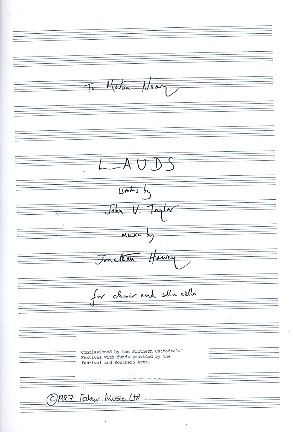 To Martin Neary
LAUDS
words by
John V. Taylor
music by
Jonathan Harvey
for choir and solo cello
Commissioned by the Southern Cathedrals
Festival with funds provided by the
Festival and Southern Arts.
©1987 Faber Music Ltd.